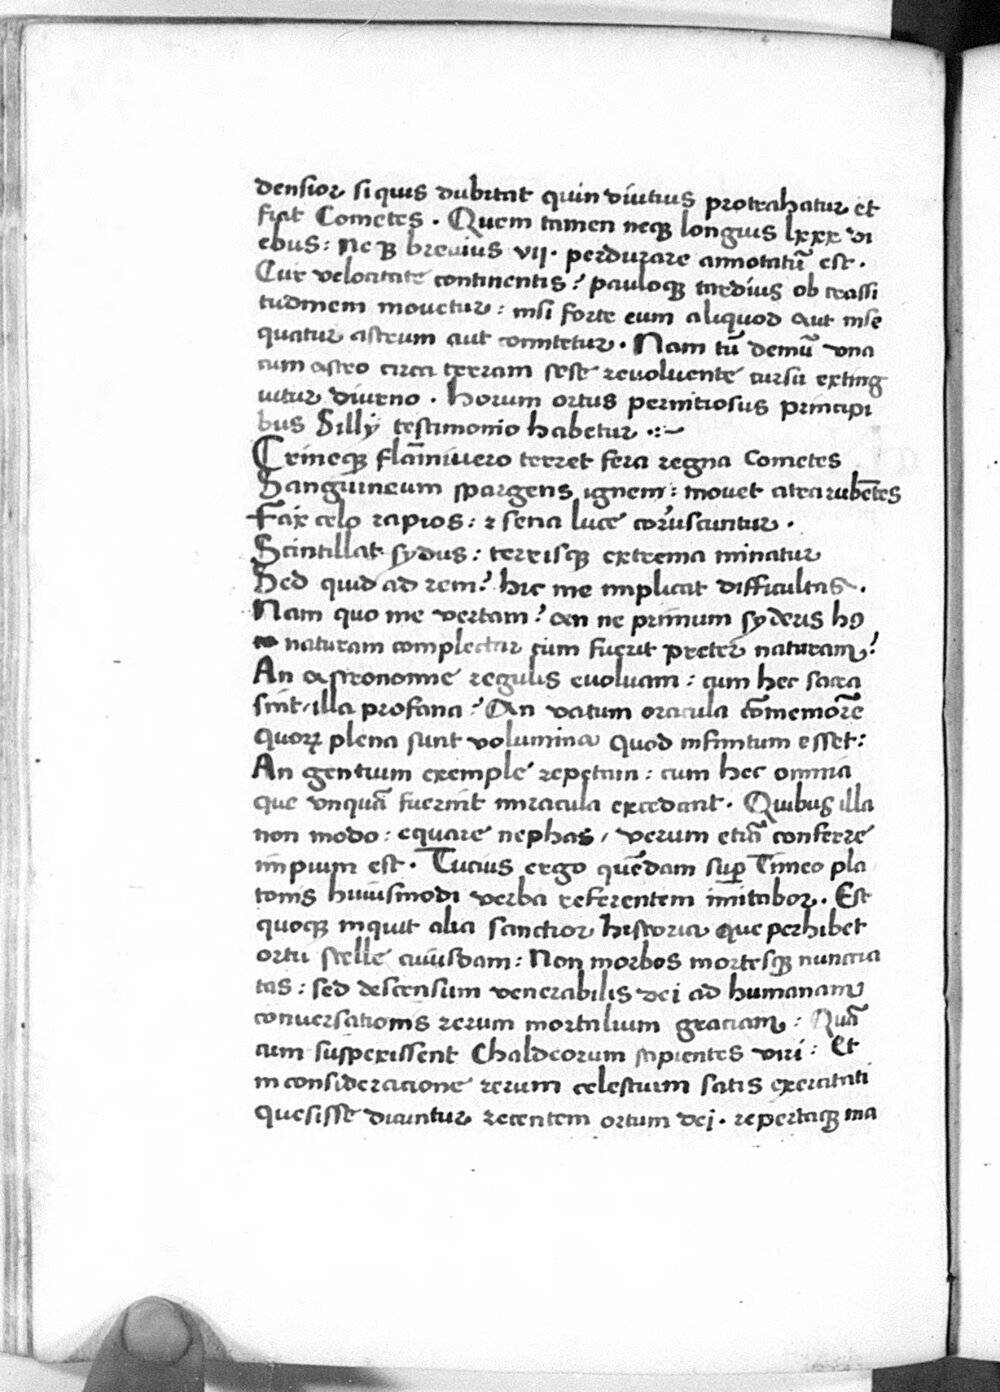 densior si quis dubitat quin diutius protrahatur et
fiat Cometes . Quem tamen neq̃ longius lxxx di
ebus : neq̃ brevius vij . perdurare annotatũ est .
Cur velocitate continentis ? pauloq̃ tardius ob crassi
tudinem movetur : nisi forte eum aliquod aut inse
quatur astrum aut comitetur . Nam tũ demũ una
cum astro circa terram sese revolvente cursu exting
uitur diurno . horum ortus pernitiosus principi
bus Silly testimonio habetur .:~
Crineq̃ flãmivero terret fera regna Cometes
Sanguineum spargens ignem : movet atra rubẽtes
Fax celo rapios : & sena luce coruscantur .
Scintillat sydus : terrisq̃ extrema minatur
Sed quid ad rem ? hic me implicat difficultas .
Nam quo me vertam ? an ne primum syderis hꝯ
naturam complectar cum fuerit preter naturam ?
An astronomie regulis evolvam : cum hec sacra
sint / illa profana ? An vatum oracula cõmemorẽ
quorꝝ plena sunt volumina quod infinitum esset :
An gentium exemple repetam : cum hec omnia
que unquã fuerint miracula excedant . Quibus illa
non modo : equare nephas / verum etiã conferre
impium est . Tucius ergo quẽdam suꝑ Timeo pla
tonis huiusmodi verba referentem imitabor . Est
quoq̃ inquit alia sanctior historia que perhibet
ortu stelle cuiusdam : Non morbos mortesq̃ nuncia
tas : sed descensum venerabilis dei ad humanam
conversationis rerum mortalium graciam : Quã
cum suspexissent Chaldeorum sapientes viri : Et
in consideracione rerum celestium satis exercitati
quesisse dicuntur recentem ortum dei . repertaq̃ ma